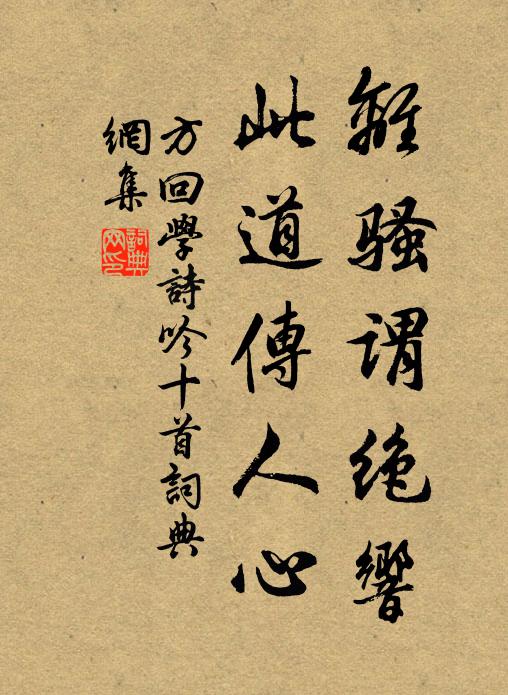 離騷謂絶響
此道傳人心
方回學詩吟十首詞典
網集
詞典
网印